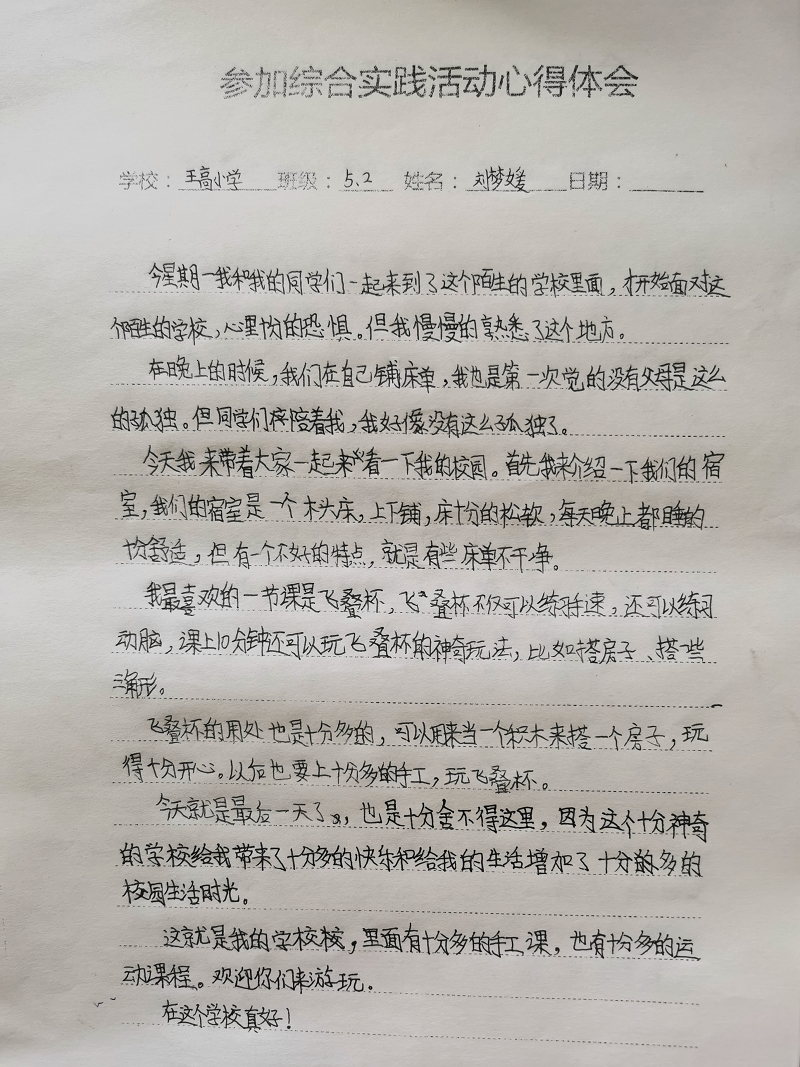 参加综合实践活动心得体会
学校：王高小学 班级：5.2 姓名：刘梦媛 日期：
今星期一我和我的同学们一起来到了这个陌生的学校里面，才开始面对这
个陌生的学校，心里十分的恐惧。但我慢慢的熟悉了这个地方。
在晚上的时候，我们在自己铺床单，我也是第一次觉的没有父母是这么
的孤独。但同学们陪着我，我好像没有这么孤独了。
今天我来带着大家一起来看一下我的校园。首先我来介绍一下我们的宿
室，我们的宿室是一个木头床，上下铺，床十分的松软，每天晚上都睡的
十分舒适，但有一个不好的特点，就是有些床单不干净。
我最喜欢的一节课是飞叠杯，飞叠杯不仅可以练习手速，还可以练习
动脑，课上10分钟还可以玩飞叠杯的神奇玩法，比如搭房子、搭一些
三角形。
飞叠杯的用处也是十分多的，可以用来当一个积木来搭一个房子，玩
得十分开心。以后也要上十分多的手工，玩飞叠杯。
今天就是最后一天了，也是十分舍不得这里，因为这个十分神奇
的学校给我带来了十分多的快乐和给我的生活增加了十分多的
校园生活时光。
这就是我的学校，里面有十分多的手工课，也有十分多的运
动课程。欢迎你们来游玩.
在这个学校真好！